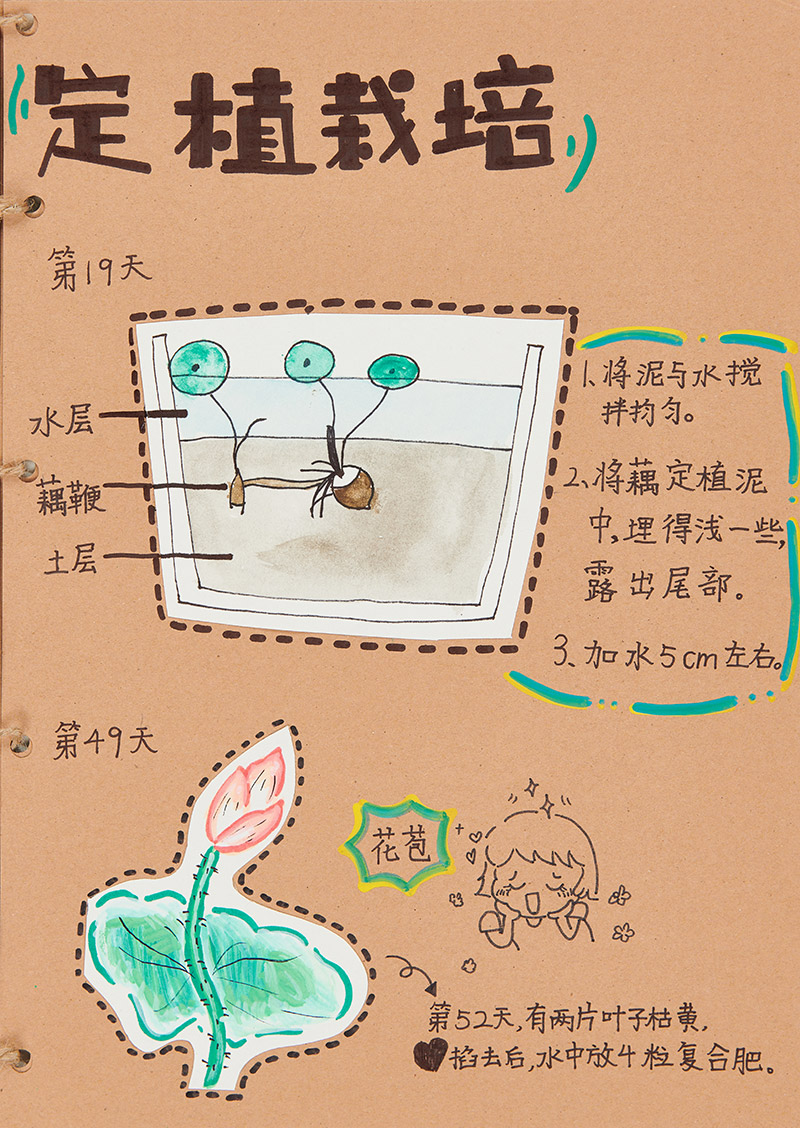 定植栽培
第19天
水层
藕鞭
土层
1、将泥与水搅
拌均匀。
2、将藕定植泥
中,埋得浅一些,
露出尾部。
3、加水5cm左右。
第49天
花苞
第52天,有两片叶子枯黄,
掐去后,水中放4粒复合肥。